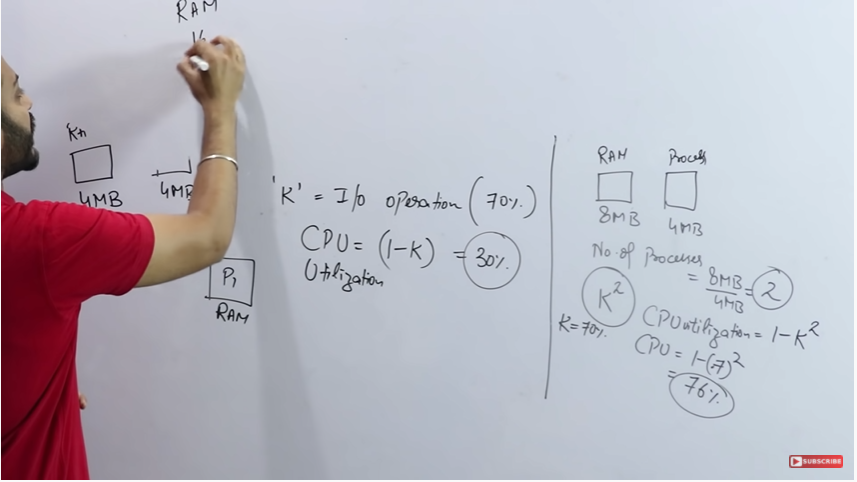 RAM
4MB
4MB
P1
RAM
'K' = I/o operation (70%)
CPU = (1-K) = 30%
Utilization
RAM Process
8MB 4MB
No. of Processes
= 8MB/4MB = 2
K²
K=70%
CPU utilization = 1-K²
CPU = 1-(.7)²
= 76%
SUBSCRIBE